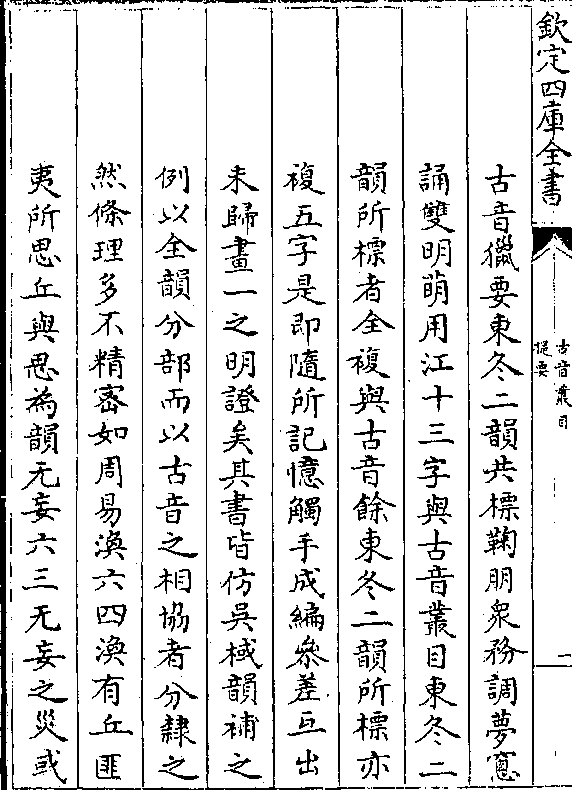 欽定四庫全書
古音叢目
提要
一
古音獵要東冬二韻共標鞠朋衆務調夢窻
誦雙明萌用江十三字與古音叢目東冬二
韻所標者全複與古音餘東冬二韻所標亦
複五字是即隨所記憶觸手成編參差互出
未歸畫一之明證矣其書皆仿吳棫韻補之
例以今韻分部而以古音之相協者分隸之
然條理多不精密如周易渙六四渙有丘匪
夷所思丘與思為韻无妄六三无妄之災或